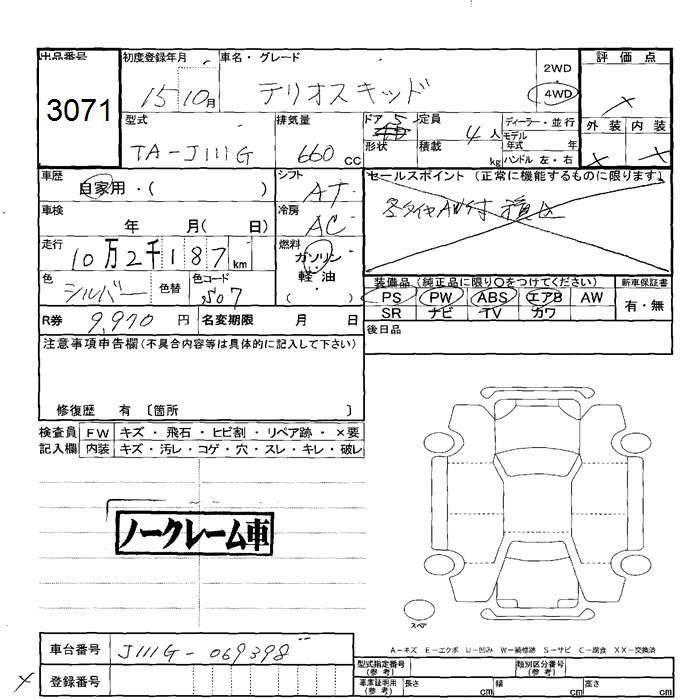 出品番号
3071
初度登録年月
15 10月
車名・グレード
テリオスキッド
2WD
4WD
評価点
×
外装 内装
× ×
型式
TA-J111G
排気量
660 cc
ドア 5
形状
定員
4人
積載
kg
ディーラー・並行
モデル年式 年
ハンドル 左・右
車歴
自家用・( )
シフト
AT
セールスポイント (正常に機能するものに限ります)
車検
年 月( 日)
冷房
AC
走行
10万2千187km
燃料
ガソリン
軽・油
( )
色
シルバー
色替
色コード
S07
装備品 (純正品に限り○をつけてください)
PS PW ABS エアB AW
SR ナビ TV カワ
新車保証書
有・無
R券 9,970 円
名変期限 月 日
後日品
注意事項申告欄(不具合内容等は具体的に記入して下さい)
修復歴 有 〔箇所 〕
検査員 FW キズ・飛石・ヒビ割・リペア跡・×要
記入欄 内装 キズ・汚レ・コゲ・穴・スレ・キレ・破レ
ノークレーム車
スペア
A-キズ E-エクボ U-凹み W-補修跡 S-サビ C-腐食 XX-交換済
車台番号 J111G-069398
× 登録番号
型式指定番号(参考)
類別区分番号(参考)
車庫証明用(参考) 長さ cm 幅 cm 高さ cm